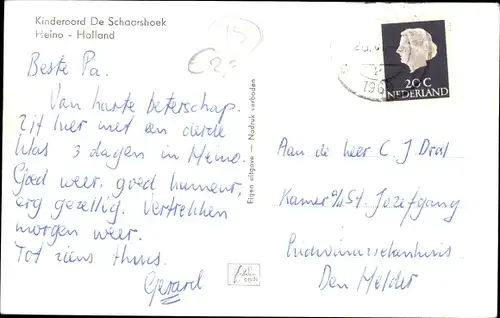 Kinderoord De Schaarshoek
Heino - Holland
Beste Pa.
Van harte beterschap.
Zit hier met een derde
klas 3 dagen in Heino.
Goed weer, goed humeur,
erg gezellig. Vertrekken
morgen weer.
Tot ziens thuis.
Gerard
Eigen uitgave — Nadruk verboden
196
20 C
NEDERLAND
Aan de heer C. J. Drat
Kamer St. Jozefgang
Lidwinaziekenhuis
Den Helder